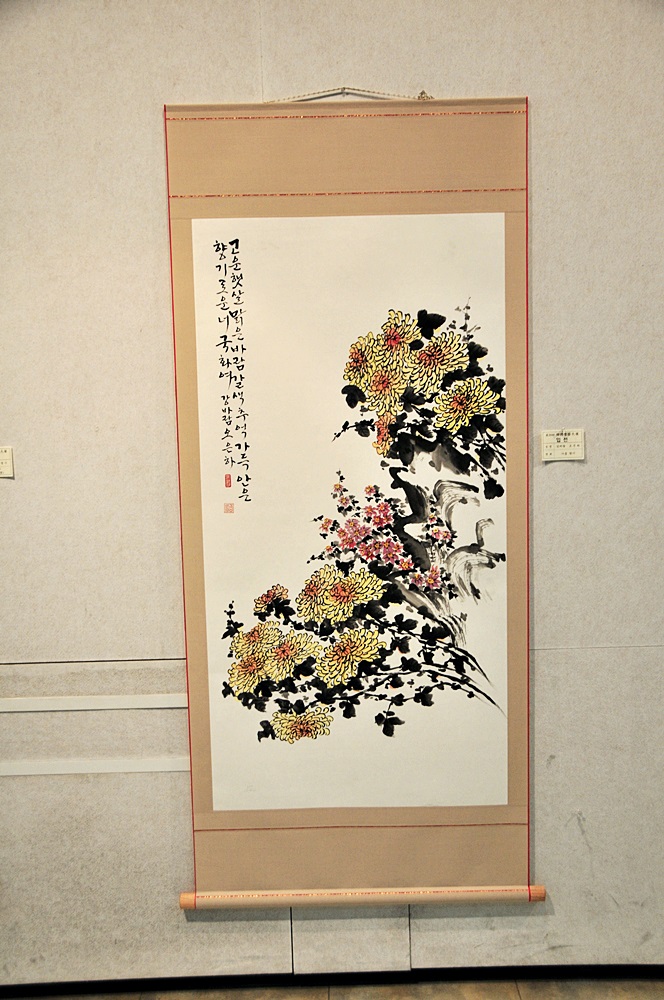 고운 햇살 맑은 바람 갈색 추억 가득 안은
향기로운 너 국화여 강바람 오은하
입선